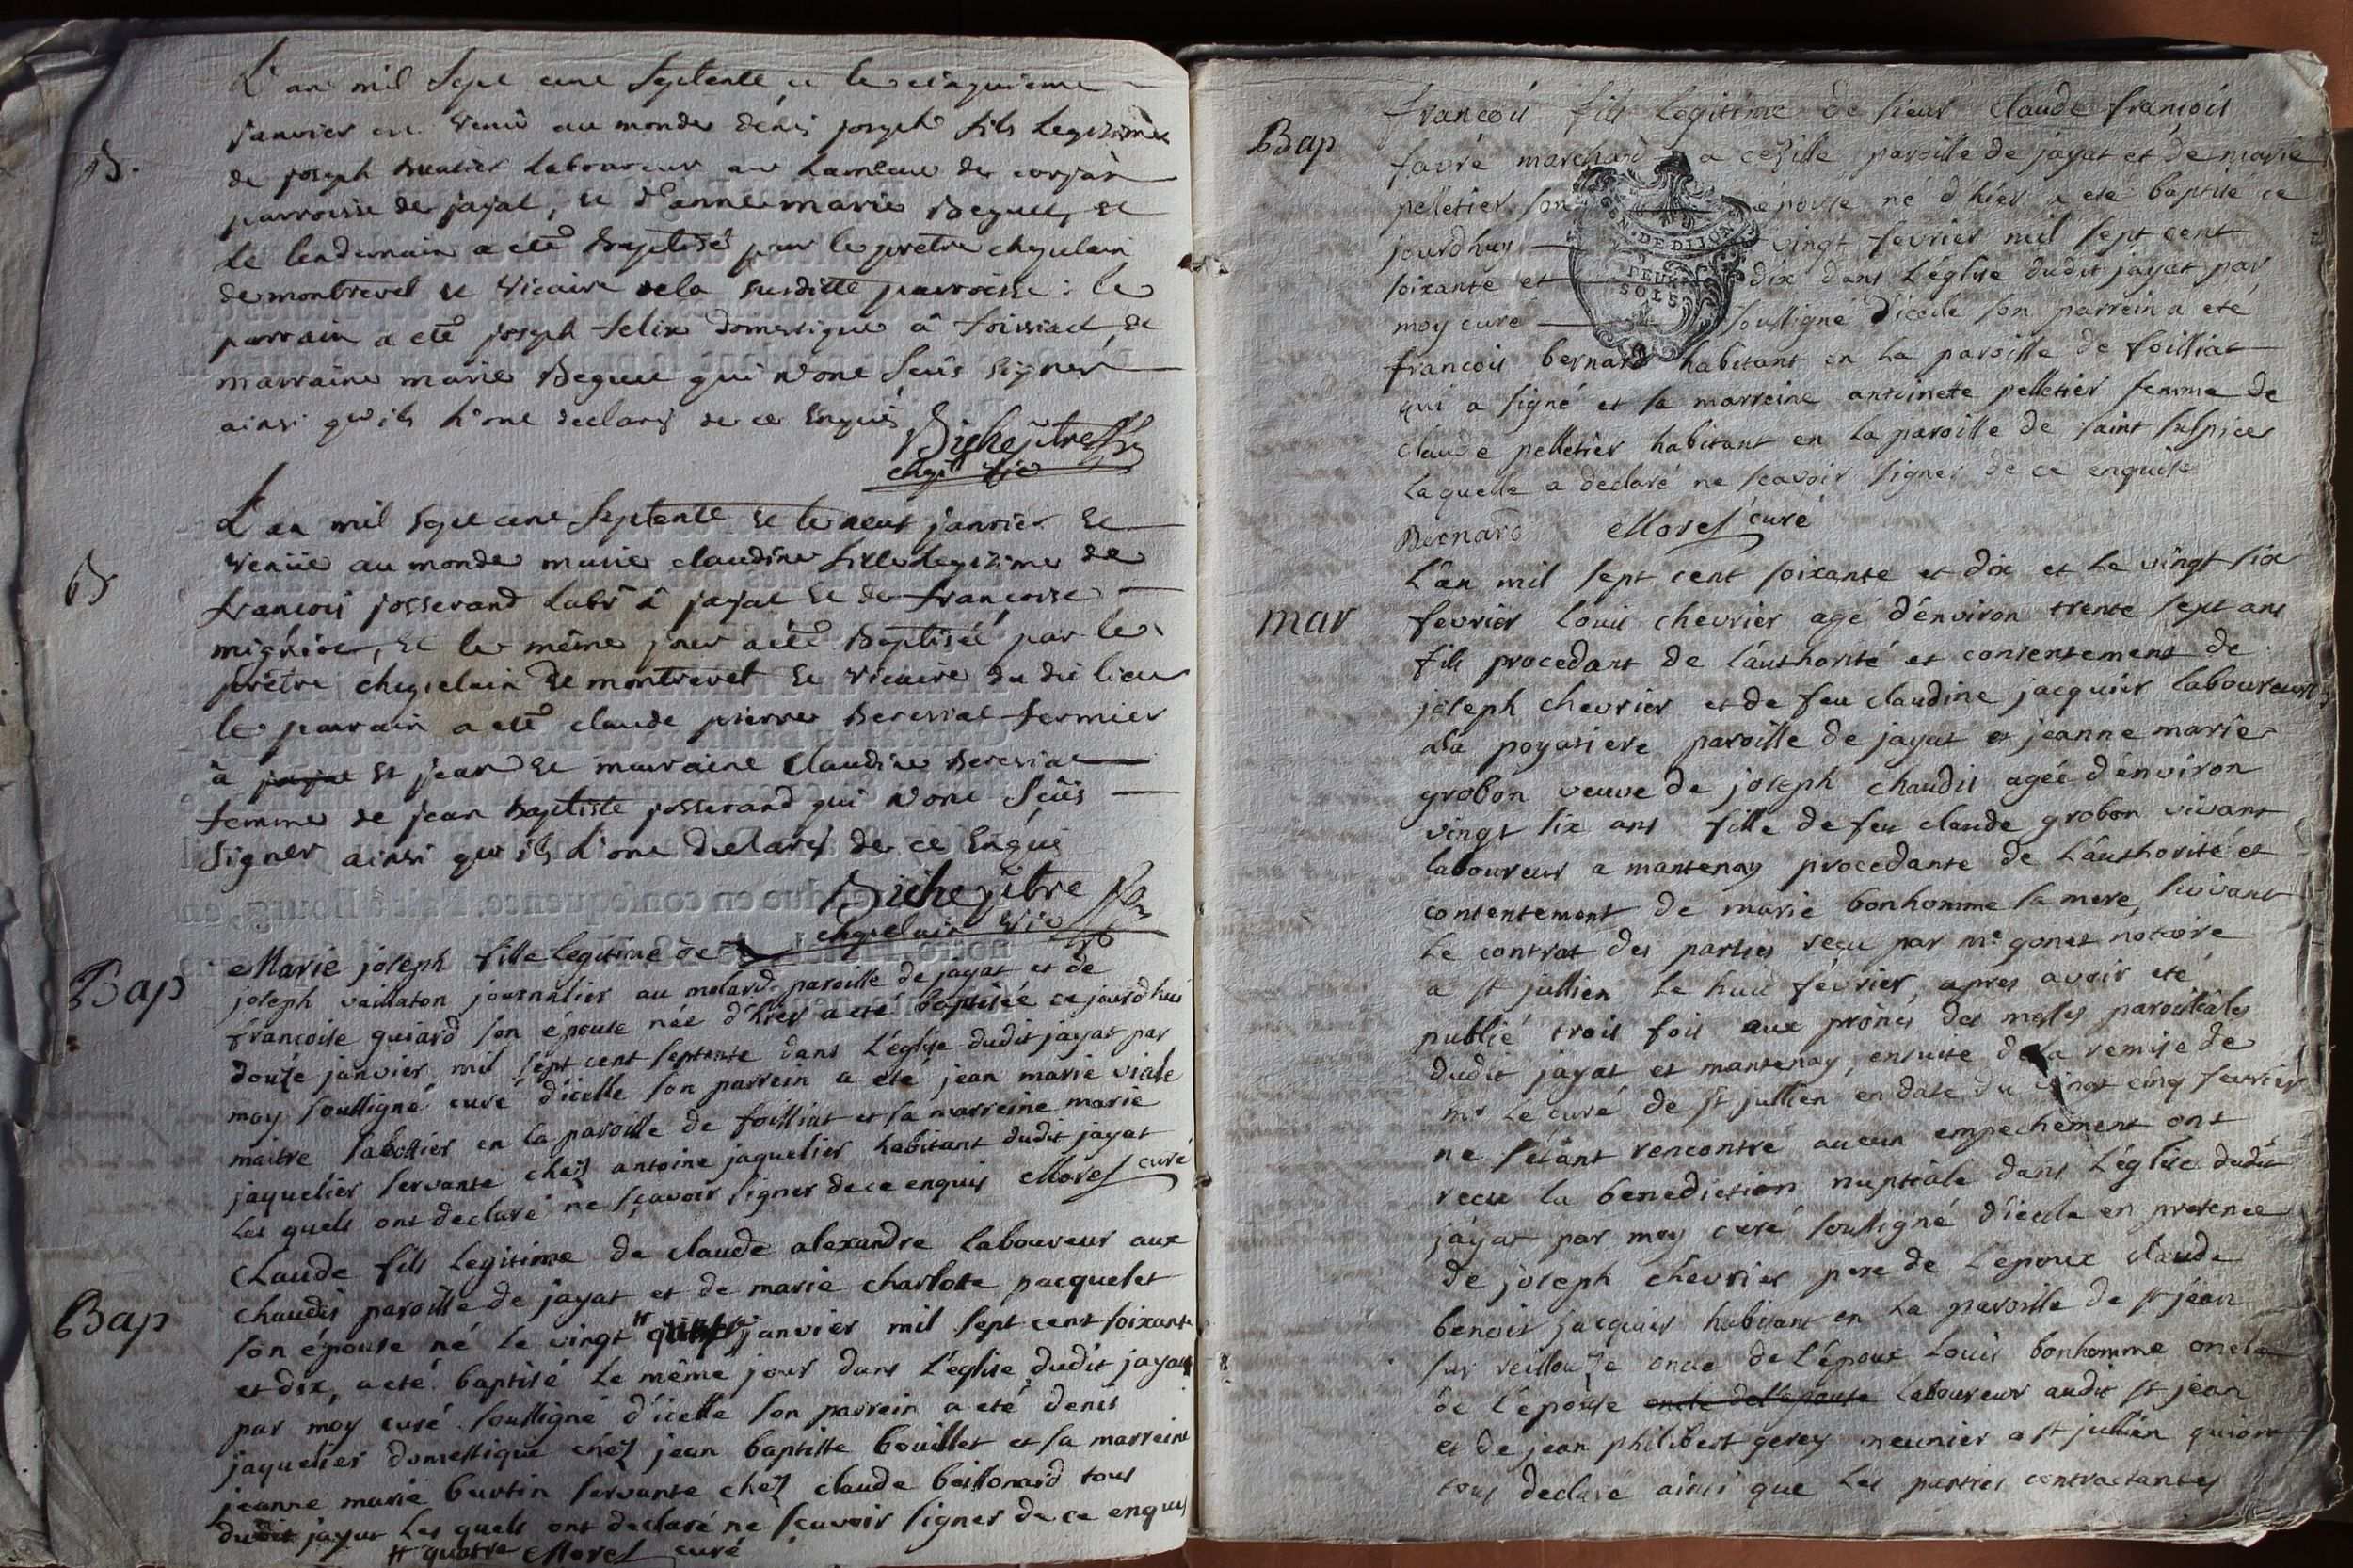 L'an mil sept cent septente et le cinquieme
B.
janvier est venu au monde dénis joseph fils legitime
de joseph laboureur au hameau de
parroisse de jayat, et d'anne marie Beguet, et
le lendemain a eté baptisé par le prêtre chapelain
de montrevel et vicaire de la susditte parroisse : le
parrain a eté joseph felix domestique à foissiat et
marraine marie Beguet qui n'ont sçus signer
ainsi qu'ils l'ont declarés de ce enquis
Biche ptre
chapl vic
L'an mil sept cent septente et le neuf janvier est
B
venüe au monde marie claudine fille legitime de
francois josserand labr à jayat et de francoise
et le même jour a eté Baptisée par le
prêtre chapelain de montrevel et vicaire du dit lieu
le parrain a eté claude pierre Bereziat fermier
à jayat st jean et marraine claudine Bereziat
femme de jean baptiste josserand qui n'ont sçûs
signer ainsi qu'ils l'ont declarés de ce enquis
Biche ptre
chapelain vic
Bap
Marie joseph fille legitime de
joseph vaillaton journalier au molard paroisse de jayat et de
françoise guiard son épouse née d'hier a eté baptisée ce jourd'hui
douze janvier mil sept cent septente dans l'église dudit jayat par
moy soussigné curé d'icelle son parrein a eté jean marie viale
maitre sabottier en la paroisse de foissiat et sa marreine marie
jaquelier servante chez antoine jaquelier habitant dudit jayat
les quels ont declaré ne sçavoir signer de ce enquis Morel curé
Claude fils legitime de claude alexandre laboureur aux
Bap
chaudis paroisse de jayat et de marie charlotte pacquelet
son épouse né le vingt # janvier mil sept cent soixante
et dix, a eté baptisé le même jour dans l'église dudit jayat
par moy curé soussigné d'icelle son parrein a eté denis
jaquelier domestique chez jean baptiste bouillet et sa marreine
jeanne marie burtin servante chez claude baillonard tous
dudit jayat les quels ont declaré ne sçavoir signer de ce enquis
# quatre Morel curé
francois fils legitime de sieur claude françois
Bap
favre marchand a cezille paroisse de jayat et de marie
pelletier son épouse né d'hier a eté baptisé ce
jourd'huy vingt fevrier mil sept cent
soixante et dix dans l'église dudit jayat par
moy curé soussigné d'icelle son parrein a eté
GEN. DE DIJON
DEUX
SOLS
francois bernard habitant en la paroisse de foissiat
qui a signé et sa marreine antoinete pelletier femme de
claude pelletier habitant en la paroisse de saint sulpice
laquelle a declaré ne sçavoir signer de ce enquise
Bernard Morel curé
L'an mil sept cent soixante et dix et le vingt six
mar
fevrier louis chevrier agé d'environ trente sept ans
fils procedant de l'authorité et consentement de
joseph chevrier et de feu claudine jacquier laboureur
a la poyatiere paroisse de jayat et jeanne marie
grobon veuve de joseph chaudis agée d'environ
vingt six ans fille de feu claude grobon vivant
laboureur a mantenay procedante de l'authorité et
consentement de marie bonhomme sa mere, suivant
le contrat des parties reçu par me gonet notaire
a st jullien le huit février, apres avoir eté
publié trois fois aux prônes des messes paroissiales
dudit jayat et mantenay, ensuite de la remise de
mr le curé de st jullien en date du vingt cinq fevrier
ne s'étant rencontré aucun empechement ont
recu la benediction nuptiale dans l'église dudit
jayat par moy curé soussigné d'icelle en presence
de joseph chevrier pere de l'epoux claude
benoit jacquier habitant en la paroisse de st jean
sur reillouze oncle de l'époux louis bonhomme oncle
de l'épouse oncle de l'epouse laboureur audit st jean
et de jean philibert gerey meunier a st jullien qui ont
tous declaré ainsi que les parties contractantes